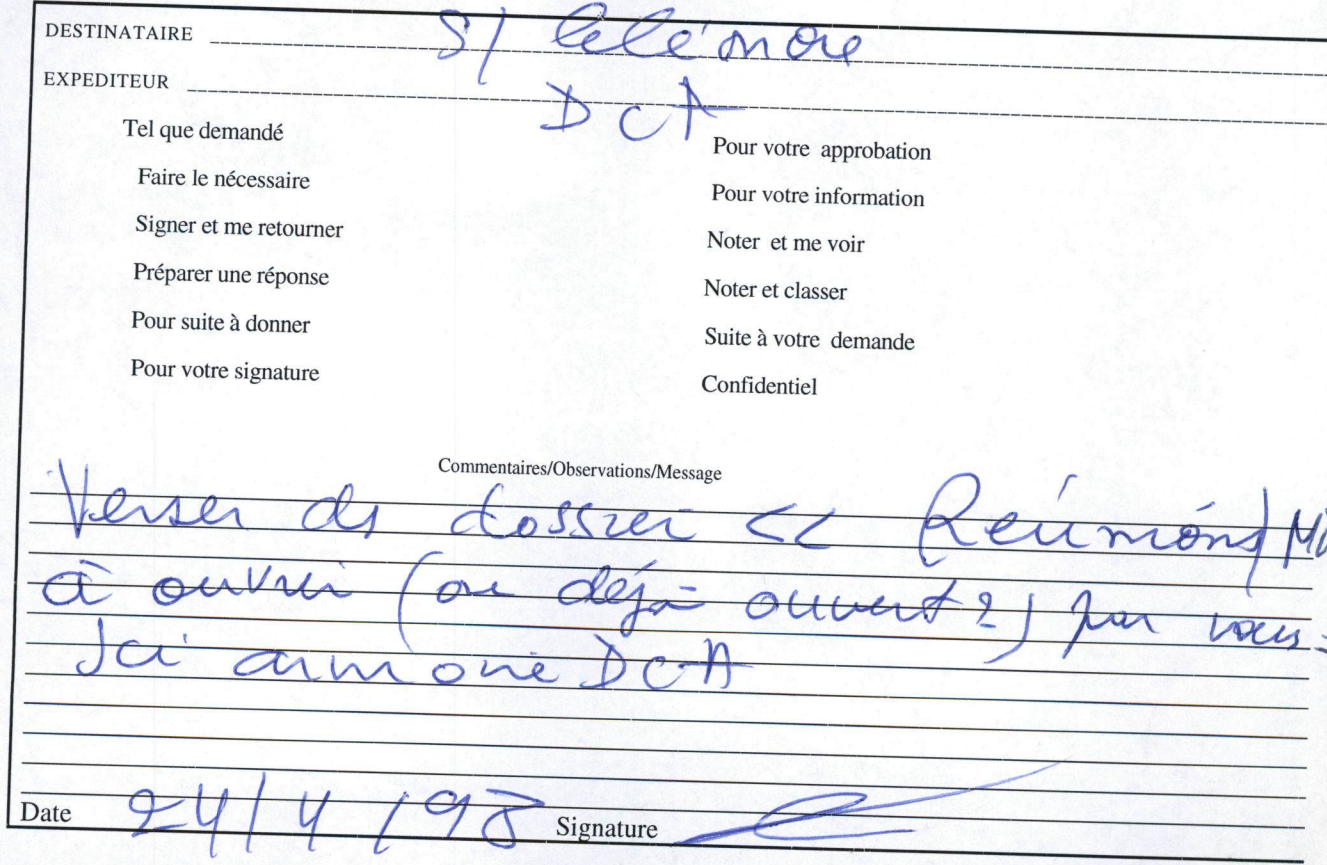 DESTINATAIRE S/ Célé more
EXPEDITEUR DCA
Tel que demandé
Faire le nécessaire
Signer et me retourner
Préparer une réponse
Pour suite à donner
Pour votre signature
Pour votre approbation
Pour votre information
Noter et me voir
Noter et classer
Suite à votre demande
Confidentiel
Commentaires/Observations/Message
Verser ds dossier << Réunions/
à ouvrir (ou déjà ouvert?) par vous
DCA
Date 24/4/98 Signature